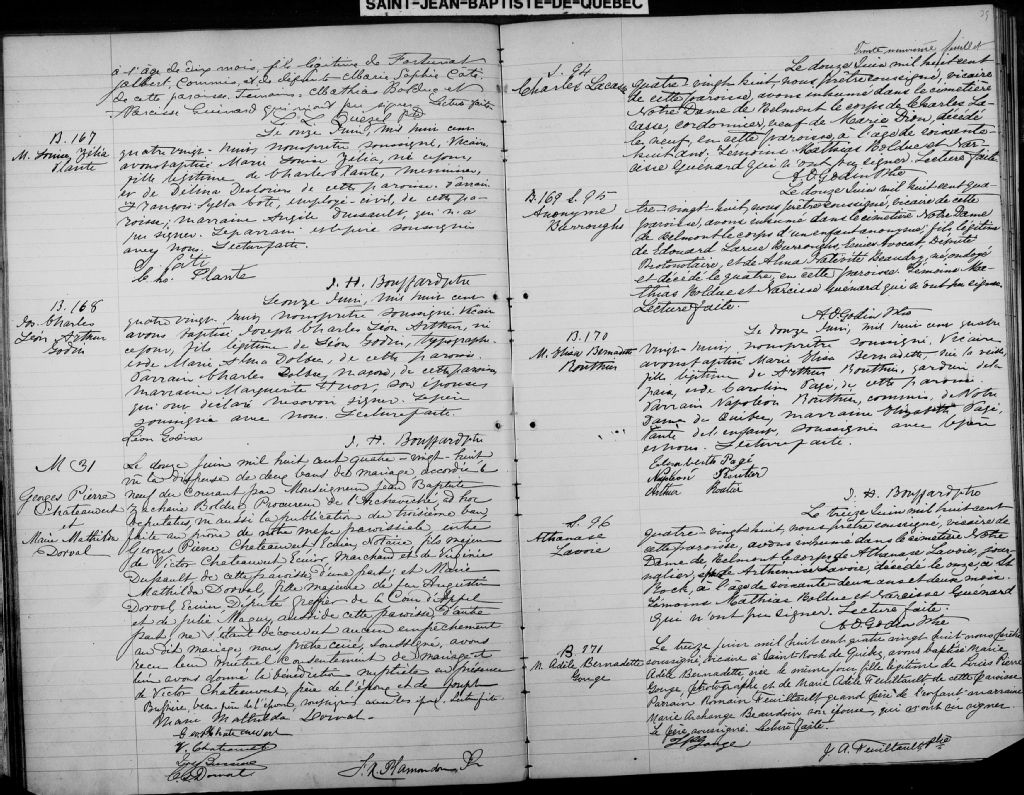 SAINT-JEAN-BAPTISTE-DE-QUÉBEC
à l'âge de dix mois, fils légitime de Fortunat
Jalbert, Commis, et de défunte Marie Sophie Côté
de cette paroisse. Témoins, Mathias Bolduc et
Narcisse Guénard qui n'ont pu signer. Lecture faite
B. 167
M. Louise Zélia
Plante
Le onze Juin, mil huit cent
quatre vingt-huit, nous prêtre soussigné, Vicaire,
avons baptisé Marie Louise Zélia, née ce jour,
fille légitime de Charles Plante, menuisier,
et de Délima Desloriers de cette paroisse. Parrain
François Sylla Côté, employé civil, de cette pa-
roisse, marraine Angèle Dussault, qui n'a
pu signer. Le parrain et le père soussignés
avec nous. Lecture faite.
Côté
Chs. Plante
J. H. Bouffard ptre
B. 168
Jos. Charles
Léon Arthur
Godin
Le onze Juin, mil huit cent
quatre vingt-huit, nous prêtre soussigné, Vicaire
avons baptisé Joseph Charles Léon Arthur, né
ce jour, fils légitime de Léon Godin, typographe
et de Marie Alma Dolbec, de cette paroisse.
Parrain Charles Dolbec, maçon, de cette paroisse,
marraine Marguerite Huot, son épouse
qui ont déclaré ne savoir signer. Le père
soussigné avec nous. Lecture faite.
Léon Godin
J. H. Bouffard ptre
M 31
Georges Pierre
Chateauvert
et
Marie Mathilda
Dorval
Le douze juin mil huit cent quatre-vingt-huit
vu la dispense de deux bans de mariage accordée le
neuf du courant par Monseigneur Jean Baptiste
Zacharie Bolduc Procureur de l'Archevêché, ad hoc
députatus, vu aussi la publication du troisième ban
faite au prône de notre messe paroissiale entre
Georges Pierre Chateauvert Ecuier, Notaire, fils majeur
de Victor Chateauvert Ecuier, Marchand et de Virginie
Dussault de cette paroisse d'une part; et Marie
Mathilda Dorval, fille majeure de feu Augustin
Dorval Ecuier, Député Greffier de la Cour d'Appel
et de Julie Maguy aussi de cette paroisse d'autre
part, ne s'étant découvert aucun empêchement
au dit mariage, nous, prêtre curé, soussigné, avons
reçu leur mutuel consentement de mariage et
leur avons donné la bénédiction nuptiale en présence
de Victor Chateauvert père de l'époux et de Joseph
Bussière, beau-frère de l'épouse, soussignés avec les époux. Lect. faite.
Marie Mathilda Dorval.
V. Chateauvert
F. X. Plamondon, Ptr
29
Trente neuvième feuillet
S. 94
Charles Lacasse
Le douze Juin mil huit cent
quatre vingt huit nous prêtre soussigné, vicaire
de cette paroisse, avons inhumé dans le cimetière
Notre Dame de Belmont le corps de Charles La-
casse, cordonnier, veuf de Marie Dion, décédé
le neuf, en cette paroisse, à l'âge de soixante-
huit ans. Témoins Mathias Bolduc et Nar-
cisse Guénard qui n'ont pu signer. Lecture faite.
A. O. Godin Ptre
B. 169 S. 95
Anonyme
Burroughs
Le douze Juin mil huit cent qua-
tre-vingt-huit, nous prêtre soussigné, vicaire de cette
paroisse, avons inhumé dans le cimetière Notre Dame
de Belmont le corps d'un enfant anonyme, fils légitime
de Edouard Larue Burroughs, Ecuier, Avocat, Député
Protonotaire, et de Alma Natalité Beaudry, né, ondoyé
et décédé le quatre, en cette paroisse. Témoins Ma-
thias Bolduc et Narcisse Guénard qui n'ont pu signer.
Lecture faite.
A. O. Godin Ptre
B. 170
M. Eliza Bernadette
Routhier
Le douze Juin, mil huit cent quatre
vingt-huit, nous prêtre soussigné, Vicaire
avons baptisé Marie Eliza Bernadette, née la veille,
fille légitime de Arthur Routhier, gardien de la
paix, et de Caroline Pagé, de cette paroisse.
Parrain Napoléon Routhier, commis, de Notre
Dame de Québec, marraine Elizabeth Pagé,
tante de l'enfant, soussignés avec le père
et nous. Lecture faite.
Elizabeth Pagé
Napoléon Routier
Arthur Routier
J. H. Bouffard ptre
S. 96
Athanase
Lavoie
Le treize Juin mil huit cent
quatre-vingt huit, nous prêtre soussigné, vicaire de
cette paroisse, avons inhumé dans le cimetière Notre
Dame de Belmont le corps de Athanase Lavoie, jour-
nalier, époux de Arthémise Lavoie, décédé le onze, à St
Roch, à l'âge de soixante-deux ans et deux mois.
Témoins Mathias Bolduc et Narcisse Guénard
qui n'ont pu signer. Lecture faite.
A. O. Godin Ptre
B. 171
M. Adèle Bernadette
Gouge
Le treize juin mil huit cent quatre vingt huit nous prêtre
soussigné, vicaire à Saint Roch de Québec, avons baptisé Marie
Adèle Bernadette, née le même jour, fille légitime de Louis Pierre
Gouge, photographe et de Marie Adèle Feuiltault de cette paroisse
Parrain Romain Feuiltault grand père de l'enfant marraine
Marie Archange Beaudoin son épouse, qui n'ont su signer.
Le père a signé. Lecture faite.
J. A. Feuiltault Ptre